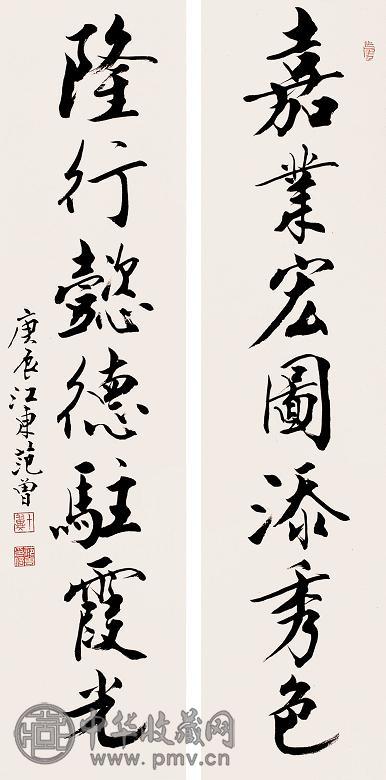 嘉業宏圖添秀色
隆行懿德駐霞光
庚辰江東范曾
中华收藏网
www.pmv.cn